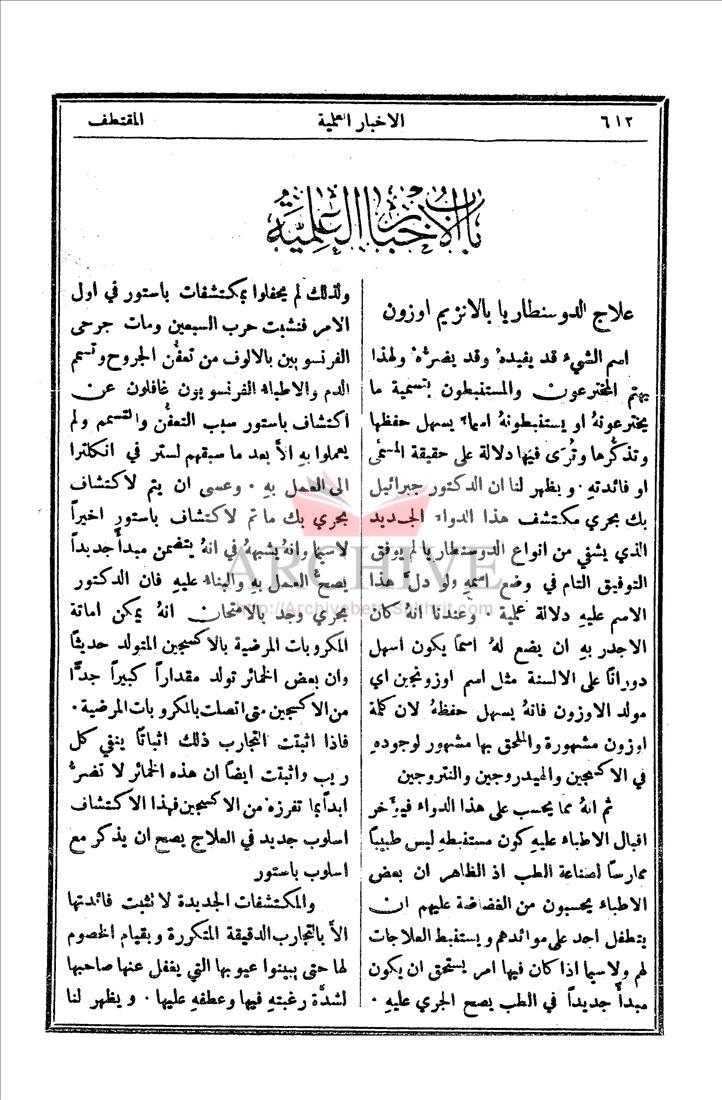 ٦١٢
الاخبار العلمية
المقتطف
باب الاخبار العلمية
علاج الدوسنطاريا بالانزيم اوزون
اسم الشيء قد يفيدهُ وقد يضرُّهُ ولهذا
يهتم المخترعون والمستنبطون بتسمية ما
يخترعونهُ او يستنبطونهُ اسماء يسهل حفظها
وتذكُّرها وتُرَى فيها دلالة على حقيقة المسمَّى
او فائدتهِ . ويظهر لنا ان الدكتور جبرائيل
بك بحري مكتشف هذا الدواء الجديد
الذي يشفي من انواع الدوسنطاريا لم يوفق
التوفيق التام في وضع اسمهِ ولو دلَّ هذا
الاسم عليهِ دلالة علمية . وعندنا انهُ كان
الاجدر بهِ ان يضع لهُ اسماً يكون اسهل
دوراناً على الالسنة مثل اسم اوزونجين اي
مولد الاوزون فانهُ يسهل حفظهُ لان كلمة
اوزون مشهورة والملحق بها مشهور لوجودهِ
في الاكسجين والهيدروجين والنتروجين
ثم انهُ مما يحسب على هذا الدواء فيؤخر
اقبال الاطباء عليهِ كون مستنبطهِ ليس طبيباً
ممارساً لصناعة الطب اذ الظاهر ان بعض
الاطباء يحسبون من الغضاضة عليهم ان
يتطفل احد على موائدهم ويستنبط العلاجات
لهم ولاسيما اذا كان فيها امر يستحق ان يكون
مبدأً جديداً في الطب يصح الجري عليهِ .
ولذلك لم يحفلوا بمكتشفات باستور في اول
الامر فنشبت حرب السبعين ومات جرحى
الفرنسويين بالالوف من تعفُّن الجروح وتسمم
الدم والاطباء الفرنسويون غافلون عن
اكتشاف باستور سبب التعفُّن والتسمم ولم
يعملوا بهِ الاَّ بعد ما سبقهم لستر في انكلترا
الى العمل بهِ . وعسى ان يتم لاكتشاف
بحري بك ما تم لاكتشاف باستور اخيراً
لاسيما وانهُ يشبههُ في انهُ يتضمن مبدأً جديداً
يصحُّ العمل بهِ والبناء عليهِ فان الدكتور
بحري وجد بالامتحان انهُ يمكن اماتة
المكروبات المرضية بالاكسجين المتولد حديثاً
وان بعض الخمائر تولد مقداراً كبيراً جدًّا
من الاكسجين متى اتصلت بالمكروبات المرضية .
فاذا اثبتت التجارب ذلك اثباتاً ينفي كل
ريب واثبتت ايضاً ان هذه الخمائر لا تضرُّ
ابداً بما تفرزه من الاكسجين فهذا الاكتشاف
اسلوب جديد في العلاج يصح ان يذكر مع
اسلوب باستور
والمكتشفات الجديدة لا تثبت فائدتها
الاَّ بالتجارب الدقيقة المتكررة وبقيام الخصوم
لها حتى يبينوا عيوبها التي يغفل عنها صاحبها
لشدَّة رغبتهِ فيها وعطفهِ عليها . ويظهر لنا
ARCHIVE
http://Archivebeta.Sakhrit.com